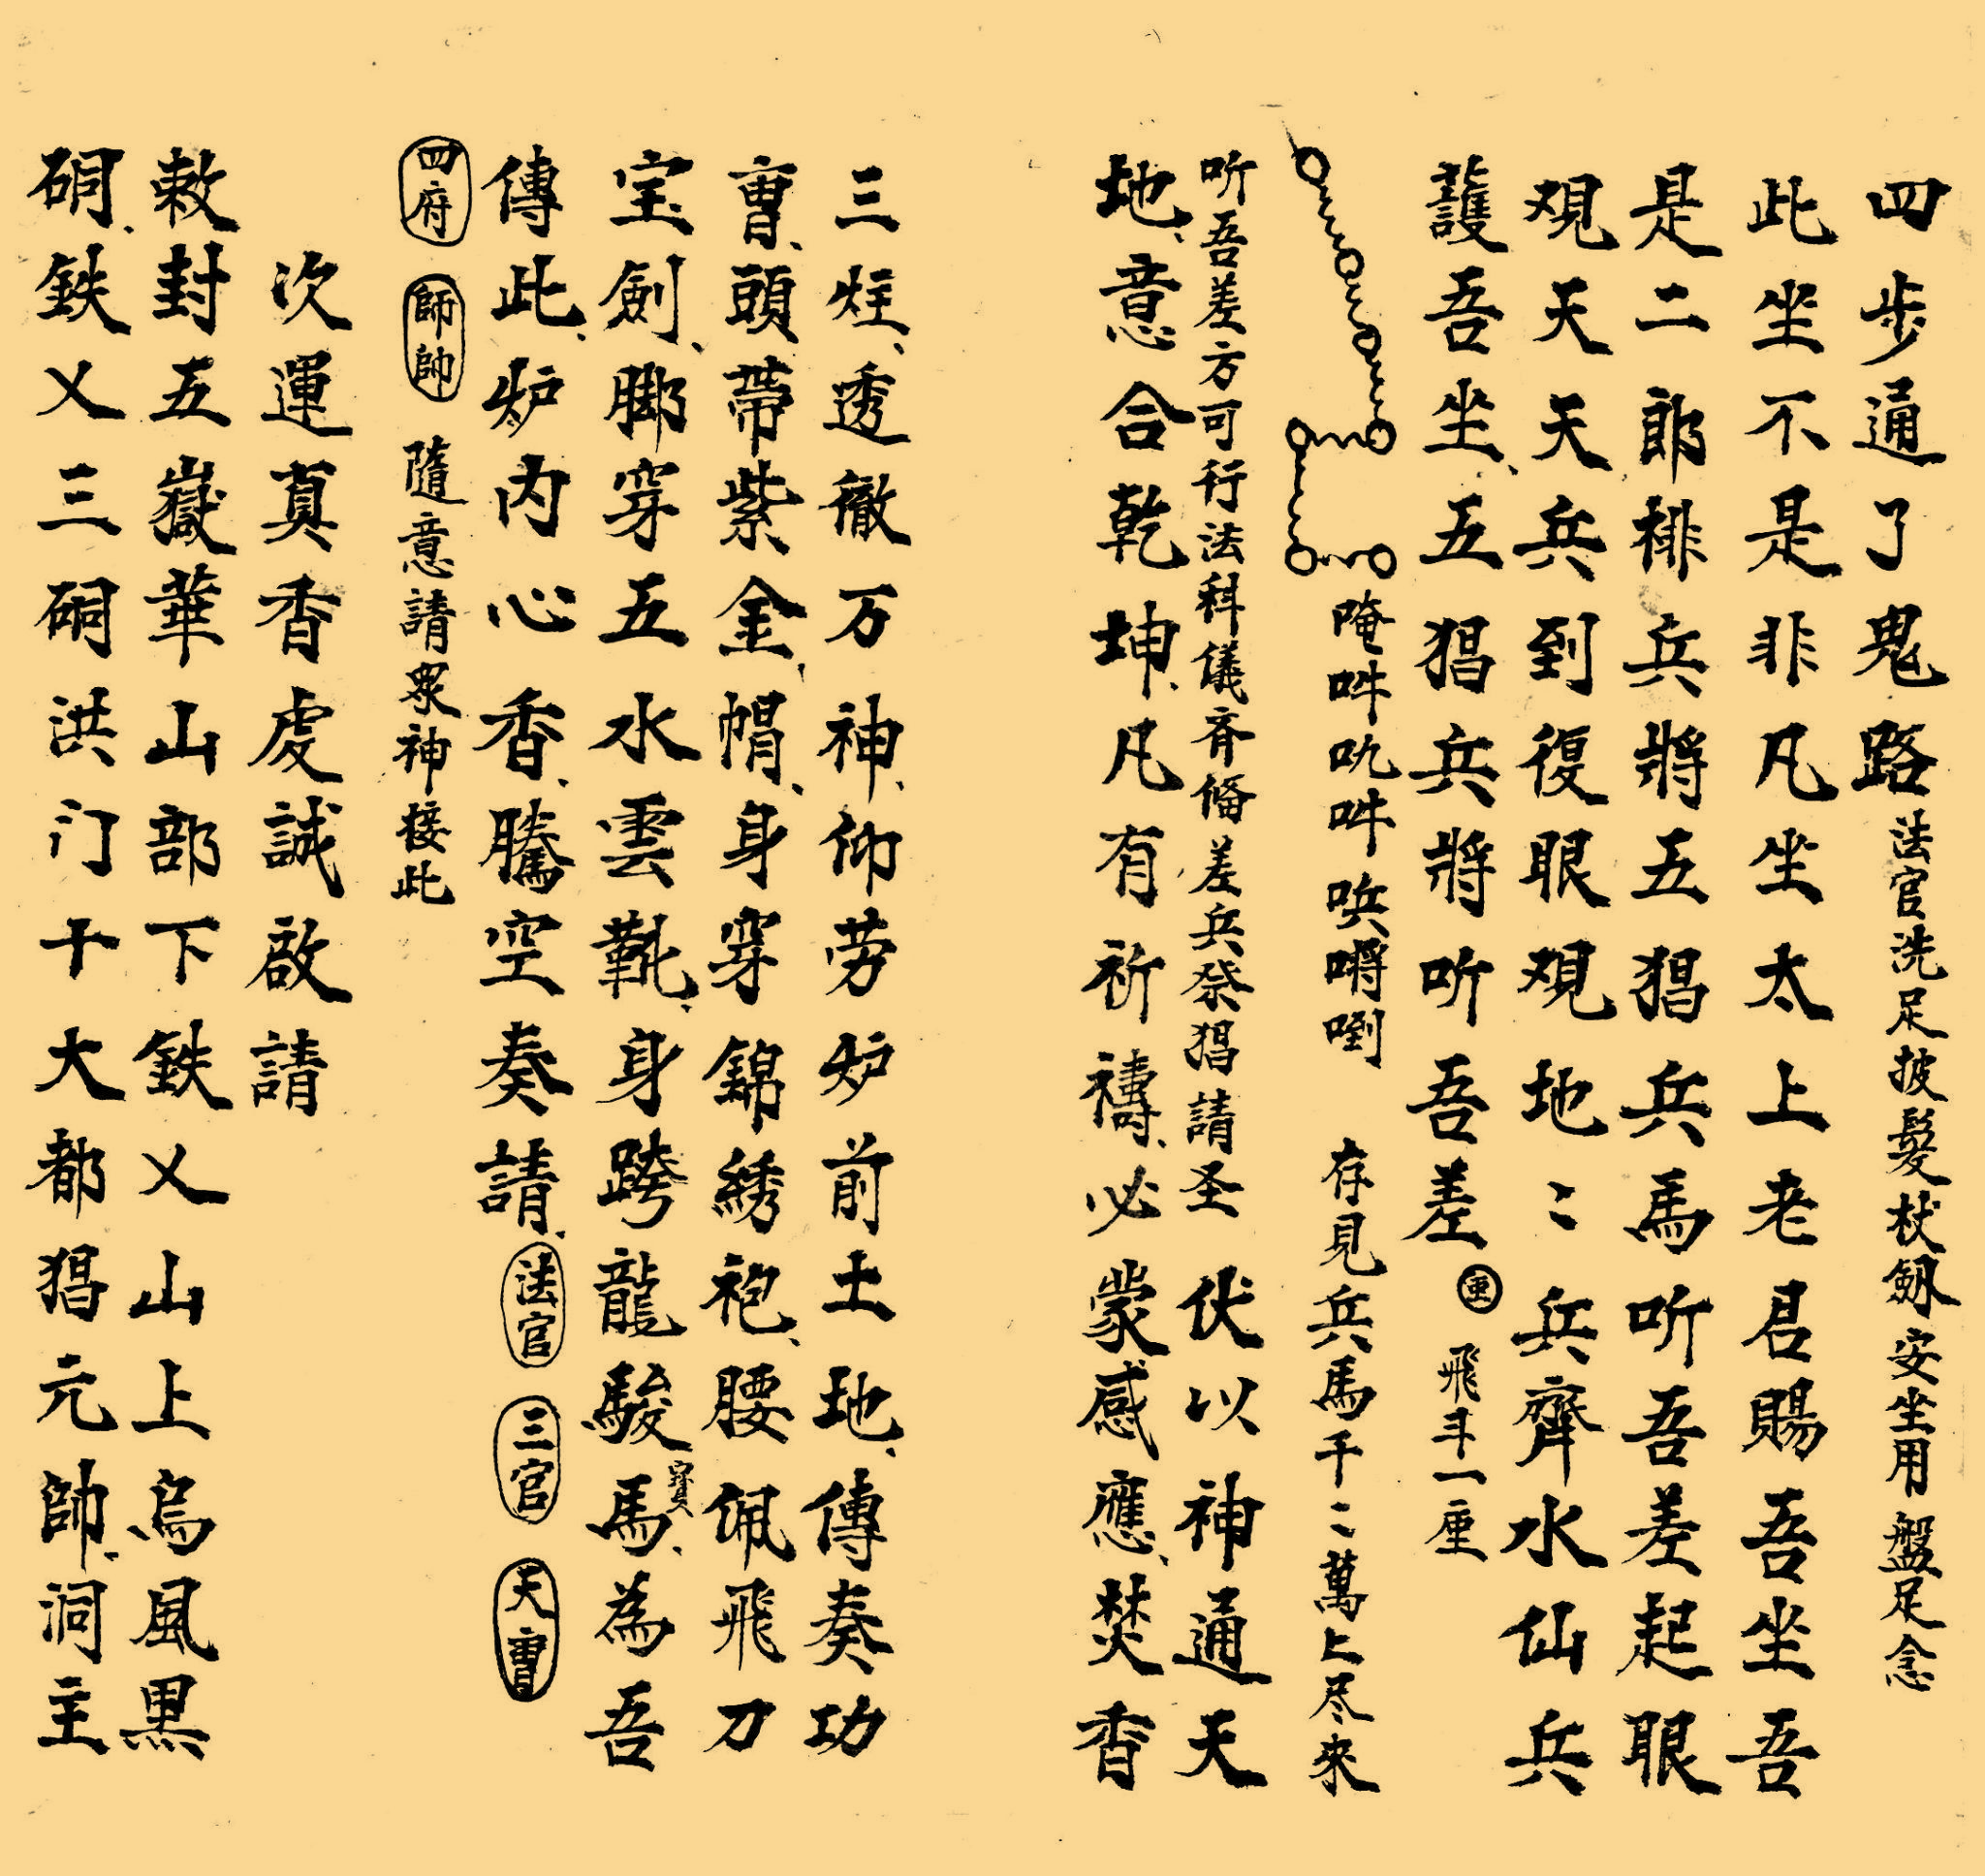 四步通了鬼路法官洗足披髮杖劔安坐用盤足念
此坐不是非凡坐太上老君賜吾坐吾
是二郎排兵將五猖兵馬听吾差起眼
观天天兵到復眼观地〻兵齊水仙兵
護吾坐、五猖兵將听吾差 飛斗一座
唵吽吼吽 存見兵馬千〻萬上尽來
听吾差方可行法科儀斉俻差兵祭猖請圣伏以神通天
地、意合乾坤、凡有祈禱、必蒙感應、焚香
三炷、透徹万神、仰劳炉前土地、傳奏功
曹、頭帶紫金帽、身穿錦綉袍、腰佩飛刀
宝劍、腳穿五水雲靴、身跨龍駿馬、為吾
寳
傳此、炉内心香、騰空奏請、法官 三官 天曹
四府 師帥 隨意請眾神接此
次運真香虔誠啟請
敕封五嶽華山部下鉄乂山上烏風黑
硐、鉄乂三硐洪门十大都猖元帥、洞主